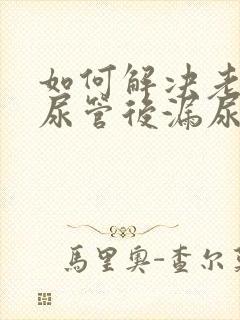 如何解决老
尿管後漏尿
馬里奥-查尔